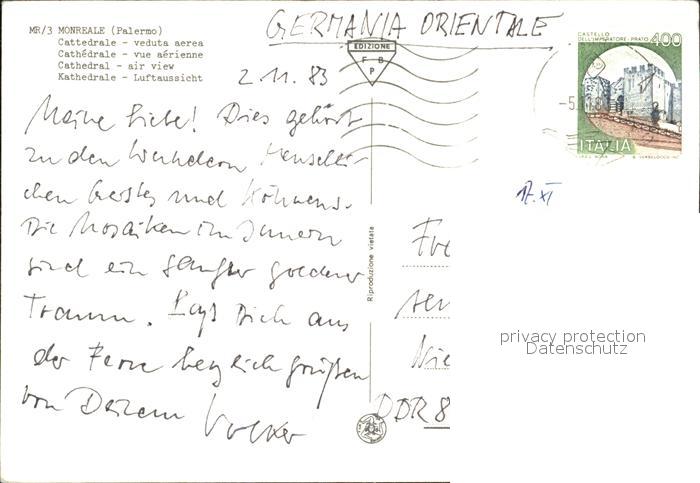 GERMANIA ORIENTALE
MR/3 MONREALE (Palermo)
Cattedrale - veduta aerea
Cathédrale - vue aérienne
Cathedral - air view
Kathedrale - Luftaussicht
EDIZIONE
F B
P
2.11.83
CASTELLO
DELL'IMPERATORE · PRATO
400
ITALIA
-5.11.8
17.XI
Meine Liebe! Dies gehört
zu den Wundern menschli-
chen Geistes und Könnens.
Die Mosaiken im Innern
sind ein sanfter goldener
Traum. Lass Dich aus
der Ferne herzlich grüßen
von Deinem Volker
Riproduzione vietata
Fre
DDR 8
privacy protection
Datenschutz